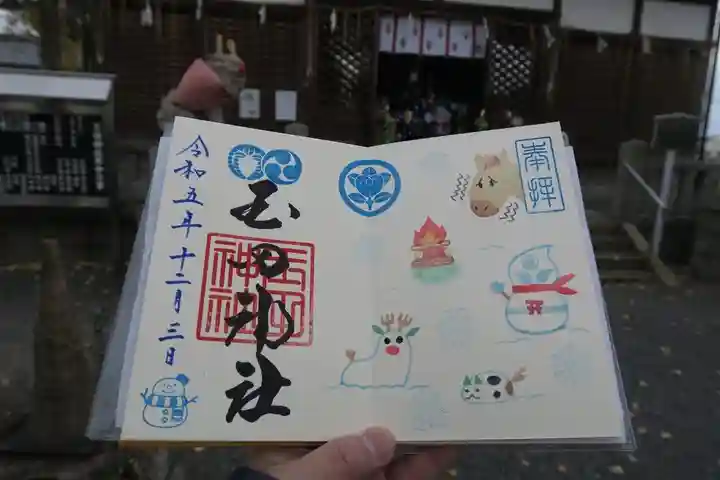 奉拝
玉田神社
玉田
神社
令和五年十二月三日